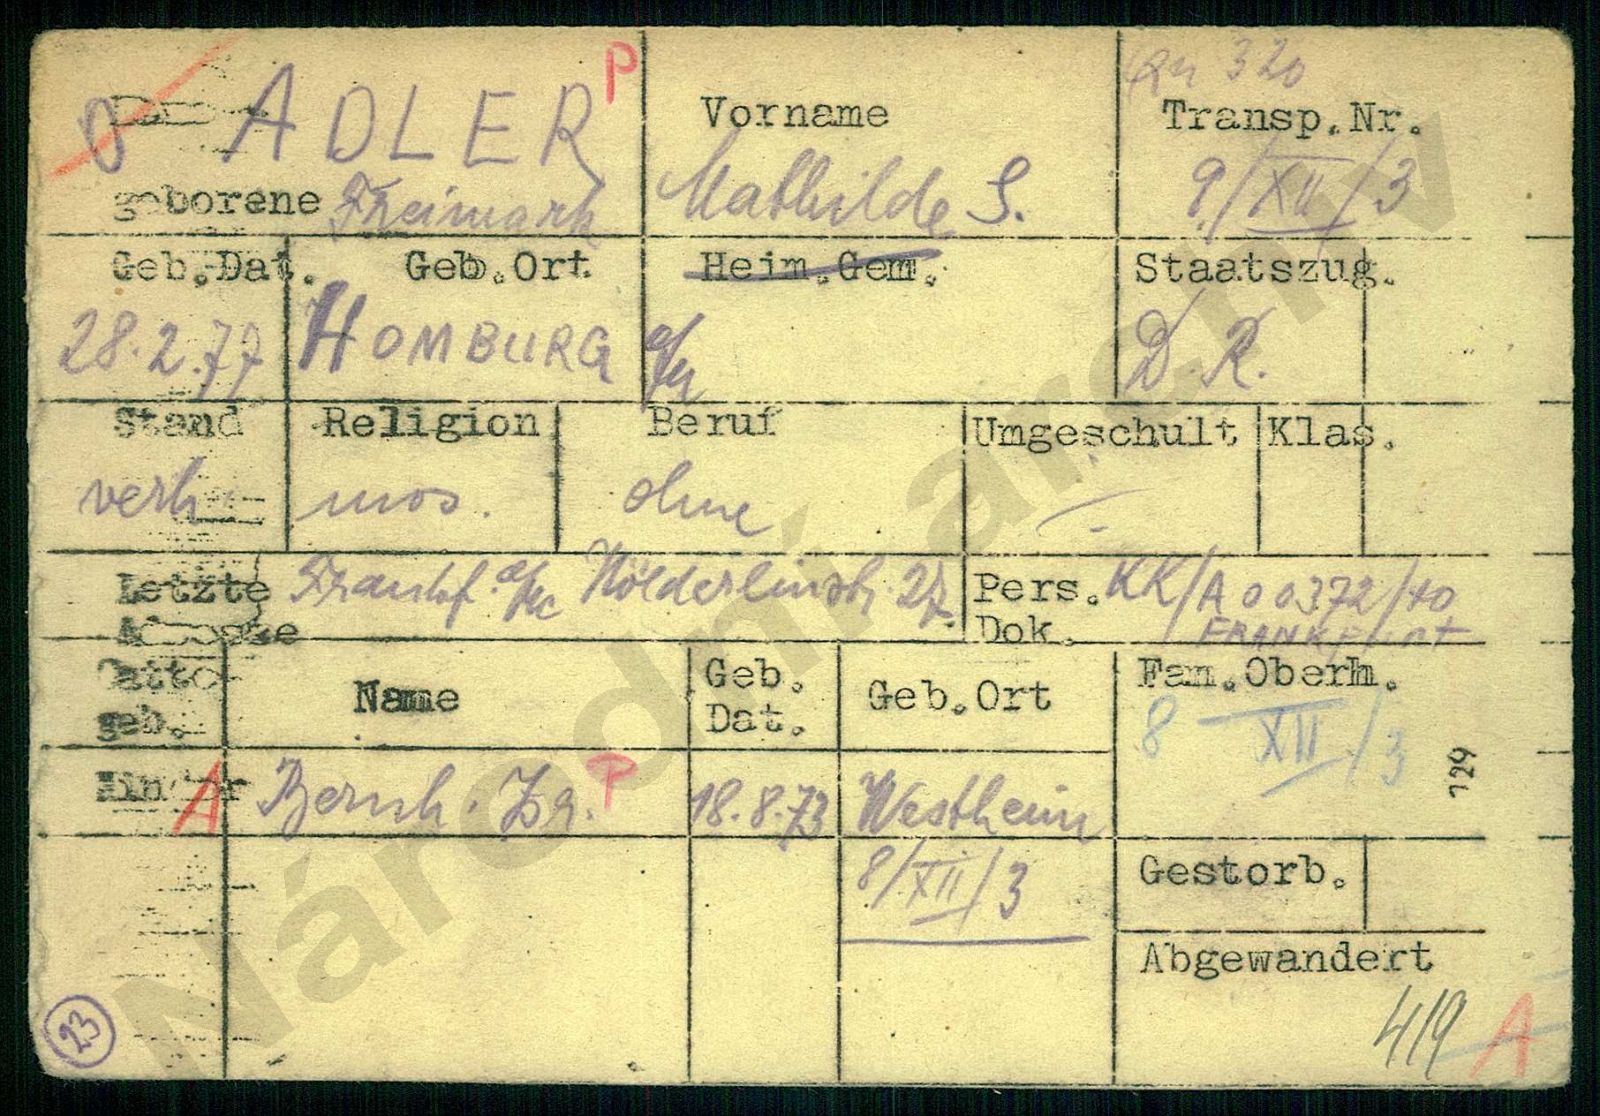 ADLER P
geborene Freimark
Vorname
Mathilde S.
Qu 320
Transp.Nr.
9/XII/3
Geb.Dat.
28.2.77
Geb.Ort
HOMBURG a/M
Heim.Gem.
Staatszug.
D.R.
Stand
verh
Religion
mos.
Beruf
ohne
Umgeschult
-
Klas.
Letzte
Frankf. a/M Hölderlinstr. 27
Pers.
Dok.
KK/A00372/40
FRANKFURT
Gatte
geb.
Name
Geb.
Dat.
Geb.Ort
Fam.Oberh.
8 XII/3
129
Kinder
A
Bernh. Isr. P
18.8.73
Westheim
8/XII/3
Gestorb.
Abgewandert
419 A
23
Národní archiv